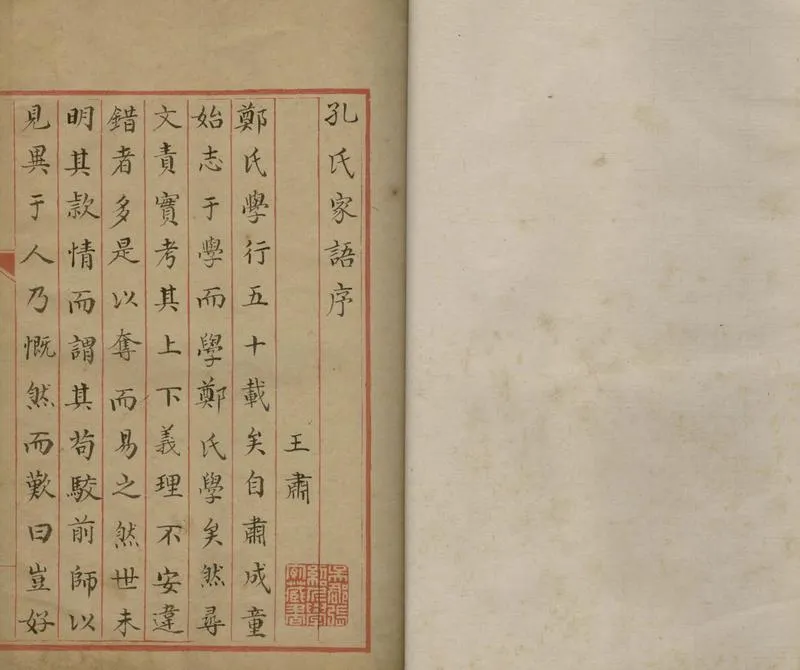 孔氏家語序
王肅
鄭氏學行五十載矣自肅成童
始志于學而學鄭氏學矣然尋
文責實考其上下義理不安違
錯者多是以奪而易之然世未
明其款情而謂其茍駮前師以
見異于人乃慨然而歎曰豈好